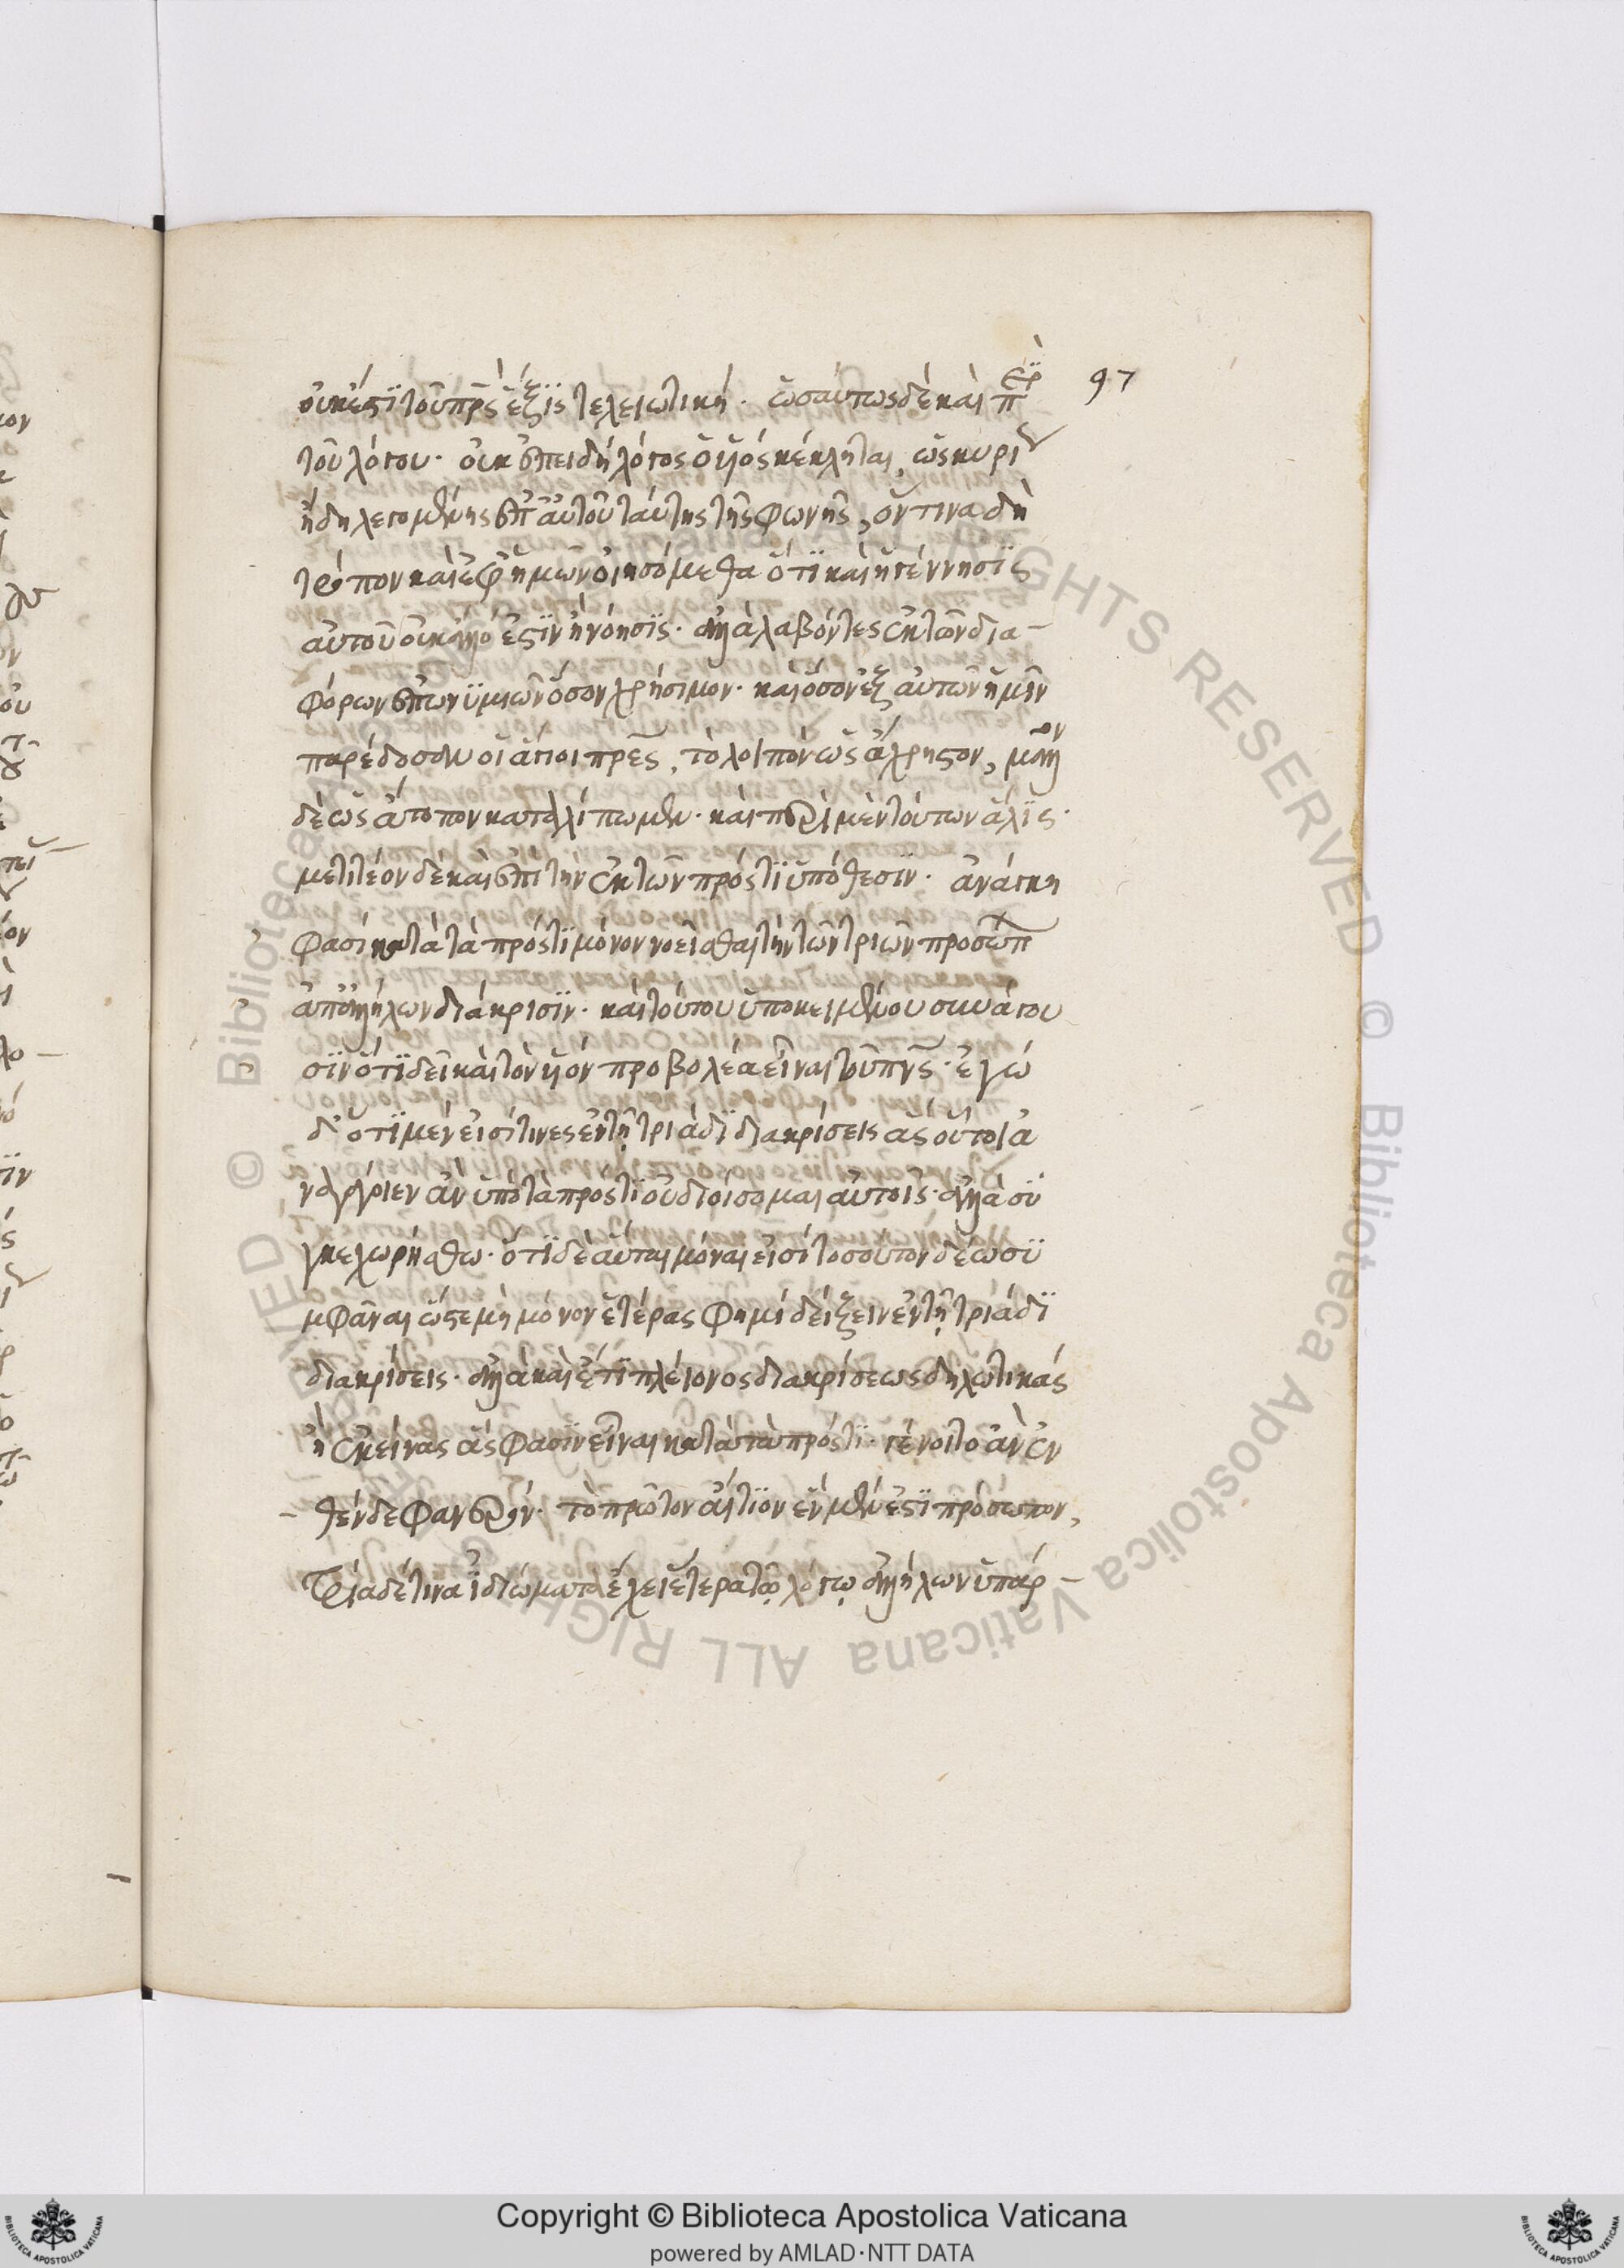 οὐκέτι τοῦ πρς ἕξις τελειωτική. ὡσαύτως δὲ καὶ περὶ
τοῦ λόγου. οὐκ ἐπειδὴ λόγος ὁ υἱὸς κέκληται, ὡς κυρι
ἤδη λεγομένης ἐπ' αὐτοῦ ταύτης τῆς φωνῆς, ὅντινα δὴ
τρόπον καὶ ἐφ' ἡμῶν οἰησόμεθα ὅτι καὶ ἡ γέννησις
αὐτοῦ οὐκ ἄλλο ἐστὶν ἢ νόησις. ἀλλὰ λαβόντες ἐκ τῶν δια-
φόρων ἐπωνυμιῶν ὅσον χρήσιμον. καὶ ὅσον ἐξ αὐτῶν ἡμῖν
παρέδοσαν οἱ ἅγιοι πρες, τὸ λοιπὸν ὡς ἄχρηστον, μᾶλλον
δὲ ὡς ἄτοπον καταλίπωμεν. καὶ περὶ μὲν τούτων ἅλις.
μετιτέον δὲ καὶ ἐπὶ τὴν ἐκ τῶν πρός τι ὑπόθεσιν. ἀνάγκη
φασὶ κατὰ τὰ πρός τι μόνον νοεῖσθαι τὴν τῶν τριῶν προσώπ
ἀπ' ἀλλήλων διάκρισιν. καὶ τούτου ὑποκειμένου συνάγου
σιν ὅτι δεῖ καὶ τὸν υἱὸν προβολέα εἶναι τοῦ πνς. ἐγὼ
δ' ὅτι μὲν εἰσί τινες ἐν τῇ τριάδι διακρίσεις ἃς οὗτοι ἀ
ναγάγοιεν ἂν ὑπὸ τὰ πρός τι οὐ διοίσομαι αὐτοῖς. ἀλλὰ συ
γκεχωρήσθω. ὅτι δὲ αὗται μόναι εἰσὶ τοσοῦτον δέω συ
μφᾶναι ὥστε μὴ μόνον ἑτέρας φημὶ δείξειν ἐν τῇ τριάδι
διακρίσεις. ἀλλὰ καὶ ἔτι πλείονος διακρίσεως δηλωτικὰς
ἢ ἐκείνας ἅς φασιν εἶναι κατὰ τὰ πρός τι. γένοιτο ἂν ἐν
-θένδε φανερόν. τὸ πρῶτον αἴτιον ἓν μέν ἐστι πρόσωπον,
τρία δέ τινα ἰδιώματα ἔχει ἕτερα τῷ λόγῳ ἀλλήλων ὑπάρ-
97
Copyright © Biblioteca Apostolica Vaticana
powered by AMLAD·NTT DATA